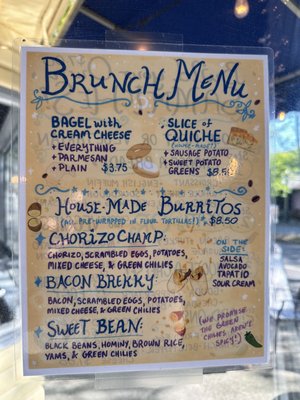 Brunch Menu
BAGEL with
CREAM CHEESE
+ EVERYTHING
+ PARMESAN
+ PLAIN $3.75
SLICE of
QUICHE
(HOUSE-MADE!)
+ SAUSAGE POTATO
+ SWEET POTATO
GREENS $8.50
House-Made Burritos
(ALL PRE-WRAPPED IN FLOUR TORTILLAS!) $8.50
CHORIZO CHAMP:
CHORIZO, SCRAMBLED EGGS, POTATOES,
MIXED CHEESE, & GREEN CHILIES
BACON BREKKY:
BACON, SCRAMBLED EGGS, POTATOES,
MIXED CHEESE, & GREEN CHILIES
SWEET BEAN:
BLACK BEANS, HOMINY, BROWN RICE,
YAMS, & GREEN CHILIES
ON THE
SIDE:
SALSA
AVOCADO
TAPATIO
SOUR CREAM
(WE PROMISE
THE GREEN
CHILIES AREN'T
SPICY!)